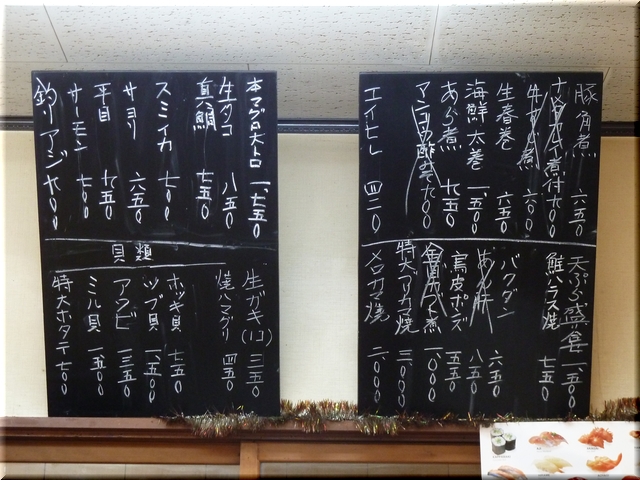 豚角煮 六五〇
煮付 九〇〇
煮 六〇〇
生春巻 六五〇
海鮮太巻 一、五〇〇
あら煮 九五〇
九〇〇
エイヒレ 四二〇
天ぷら盛合 一、五〇〇
鮭ハラス焼 七五〇
バクダン 六五〇
あん肝 八五〇
鳥皮ポンズ 五五〇
金目カブト煮 一、〇〇〇
特大アカマ焼 三、〇〇〇
メロカマ焼 二、〇〇〇
本マグロ大トロ 一、七五〇
生タコ 八五〇
真鯛 七五〇
スミイカ 七〇〇
サヨリ 六五〇
平目 九五〇
サーモン 七〇〇
釣りアジ 九〇〇
貝類
生ガキ(1コ) 三五〇
焼ハマグリ 四五〇
ホッキ貝 七五〇
ツブ貝 一、五〇〇
アワビ 一、三五〇
ミル貝 一、五〇〇
特大ホタテ 七〇〇